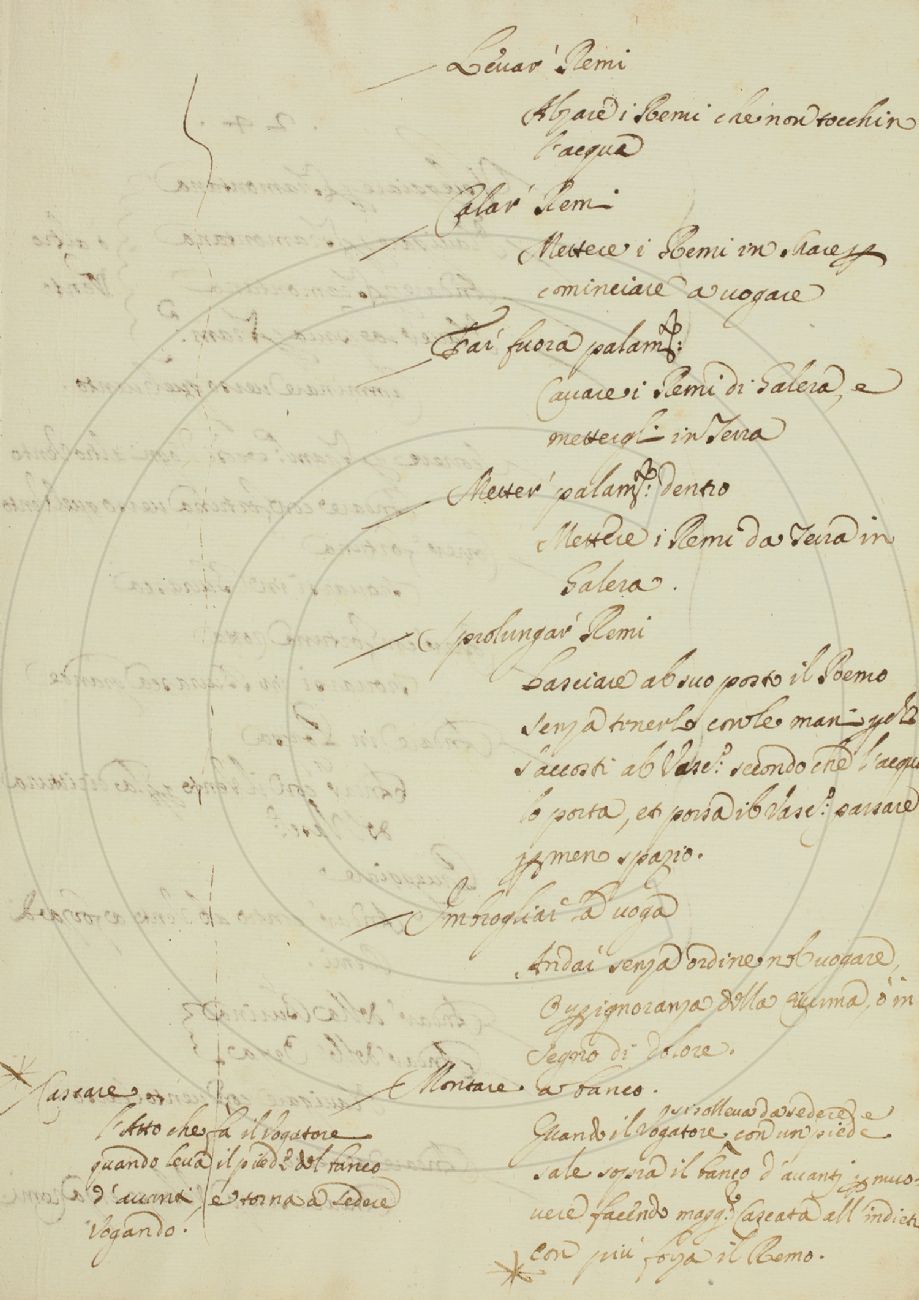 Levar' Remi
Alzare i Remi che non tocchin
l'acqua
Calar' Remi
Mettere i Remi in Mare p
cominciare a vogare
Far' fuora palam.to:
Cavare i Remi di Galera, e
mettergli in Terra
Metter' palam.to: dentro
Mettere i Remi da Terra in
Galera.
Sprolungar' Remi
Lasciare al suo posto il Remo
senza tenerlo con le mani
s'accosti al Vasc.o: secondo che l'acqua
lo porta, et possa il Vasc.o: passare
p men spazio.
Imbrogliar' la voga
Andar senza ordine nel vogare,
O p ignoranza della Ciurma, ò in
segno di dolore.
Montare a banco.
si solleva da sedere, e
Quando il Vogatore con un piede
sale sopra il banco d'avanti p muo-
vere facendo magg.e Cascata all'indietr
con più forza il Remo.
Cascare
l'Atto che fà il Vogatore
quando leva il piede del banco
d'avanti e torna a sedere
Vogando.